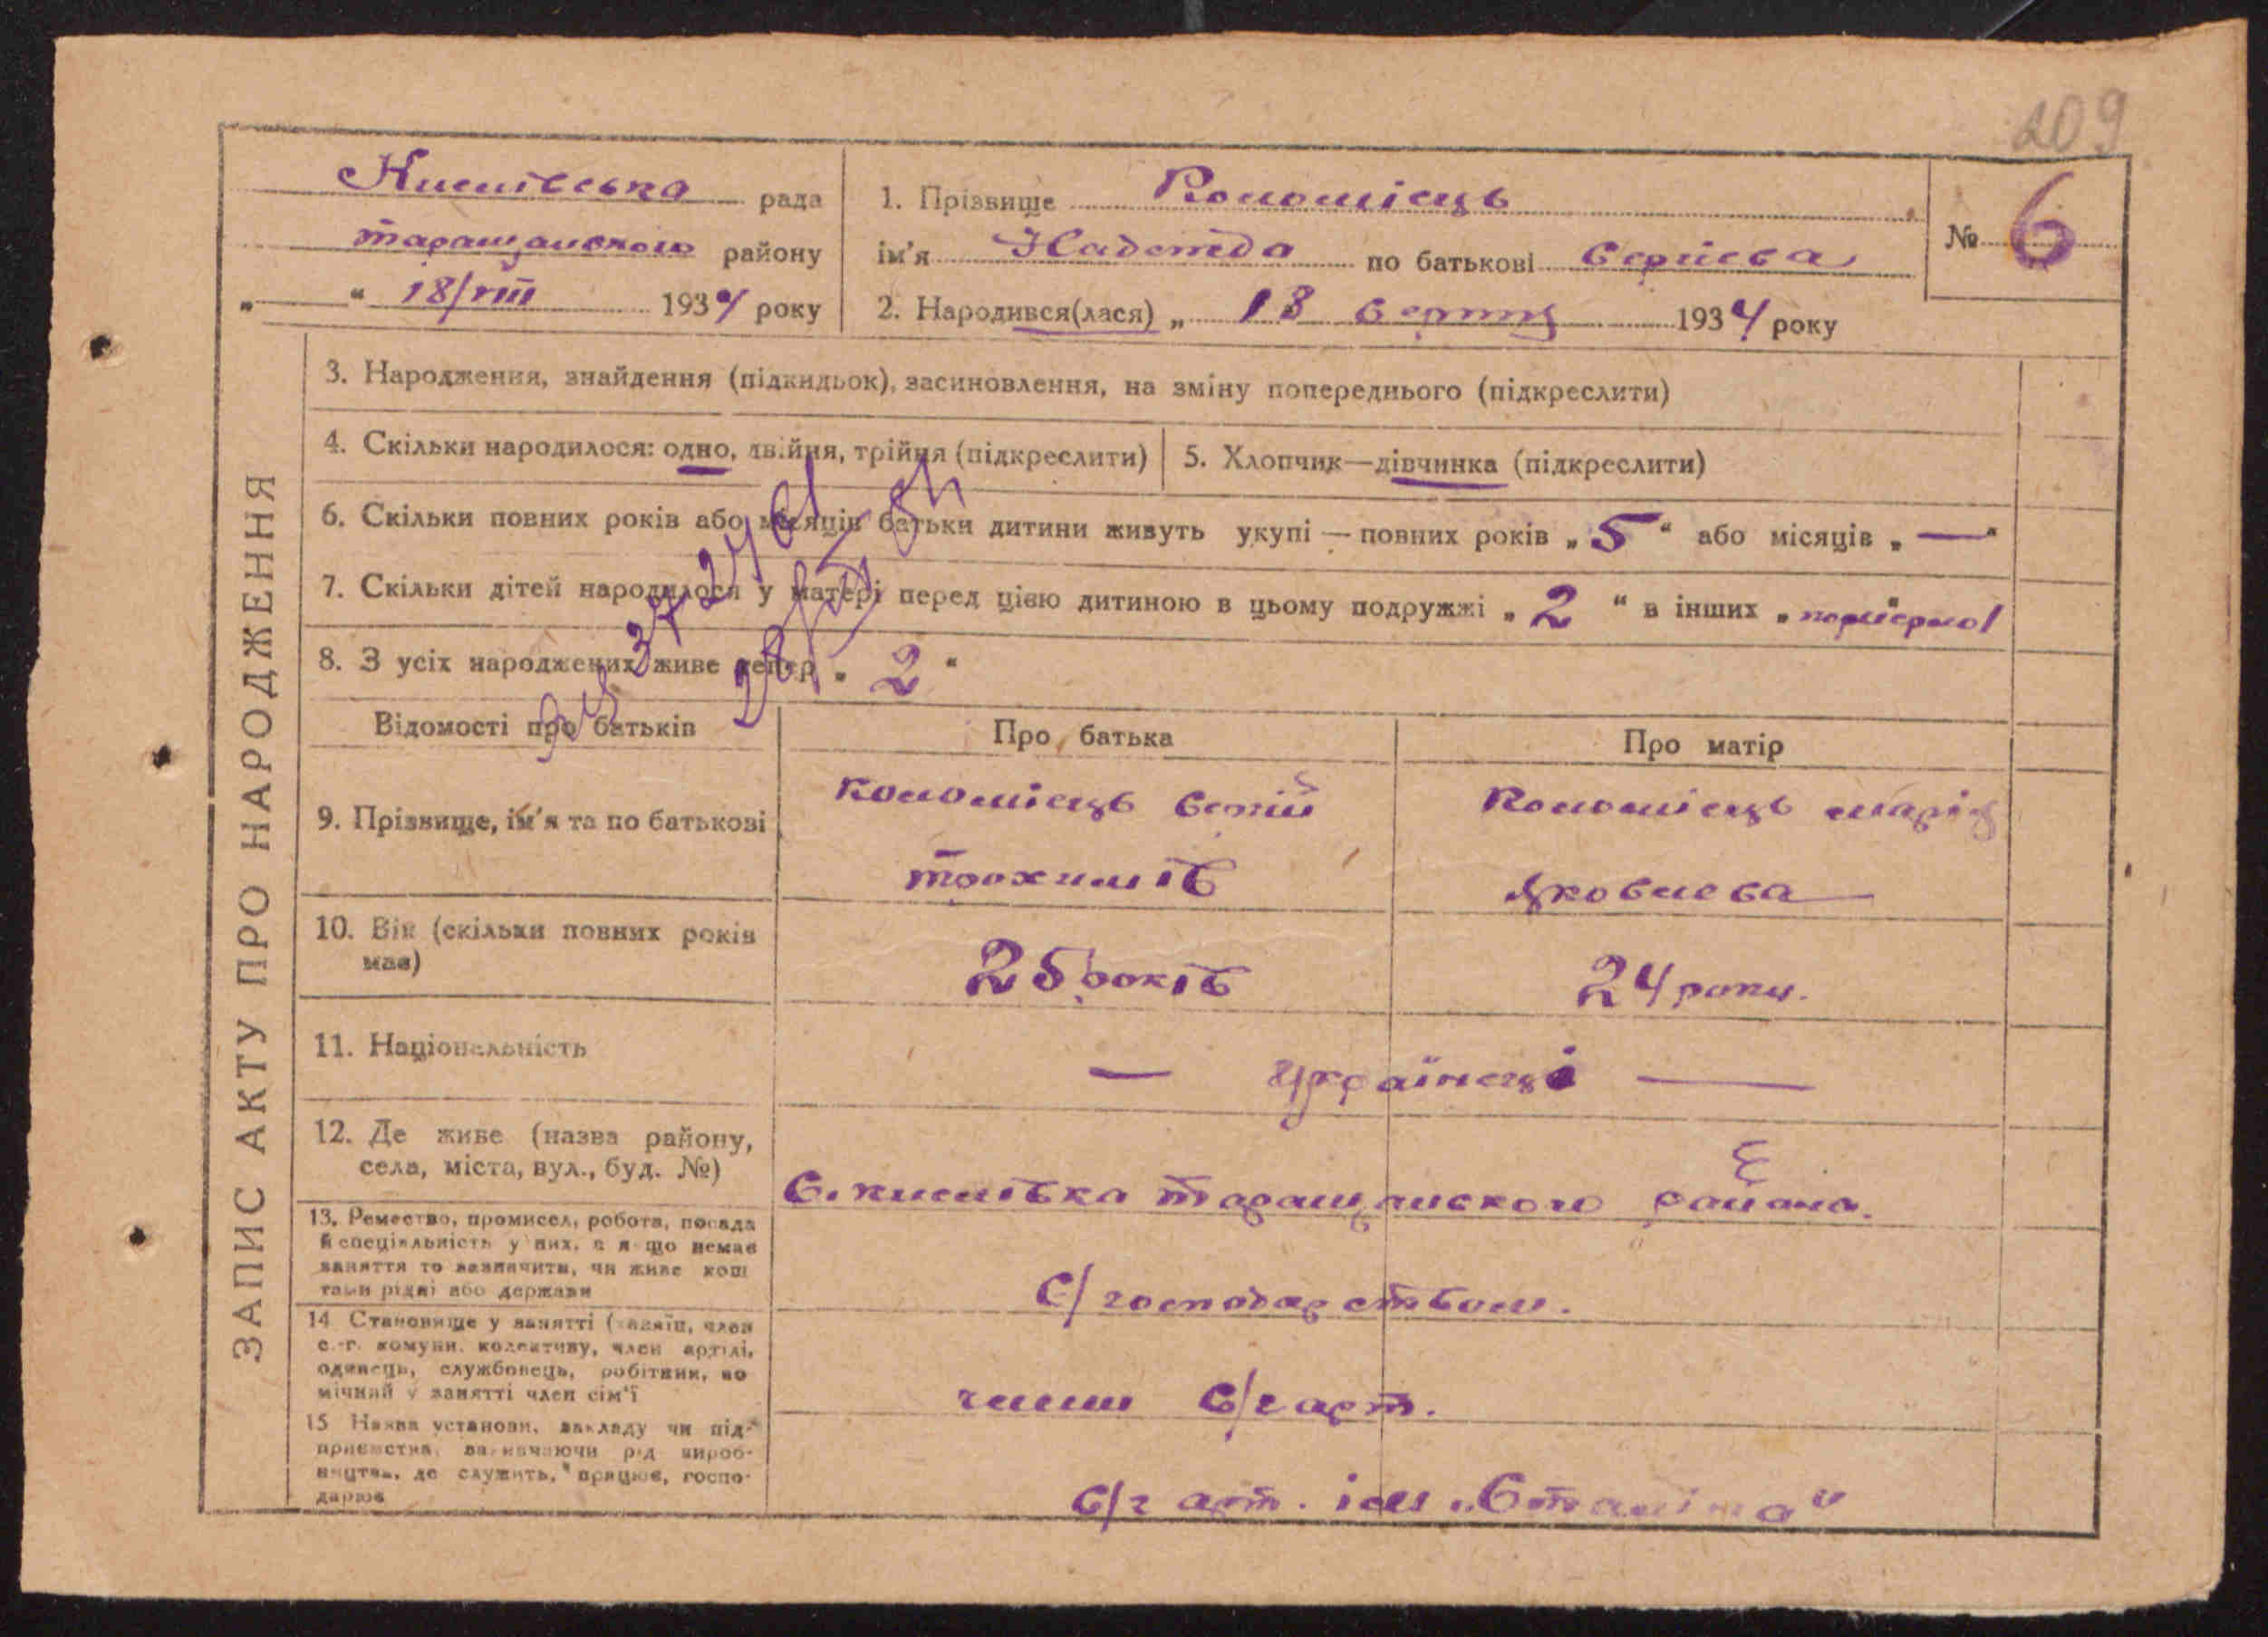 209
Кислівська рада
таращанского району
„ “ 18/VIII 1934 року
1. Прізвище Коломієць
ім'я Надежда по батькові Сергієва
2. Народився(лася) „ 13 серпня 1934 року
№ 6
ЗАПИС АКТУ ПРО НАРОДЖЕННЯ
3. Народження, знайдення (підкидьок), засиновлення, на зміну попереднього (підкреслити)
4. Скільки народилося: одно, двійня, трійня (підкреслити)
5. Хлопчик—дівчинка (підкреслити)
6. Скільки повних років або місяців батьки дитини живуть укупі — повних років „ 5 “ або місяців „ — “
7. Скільки дітей народилося у матері перед цією дитиною в цьому подружжі „ 2 “ в інших „
8. З усіх народжених живе тепер „ 2 “
Відомості про батьків
Про батька
Про матір
9. Прізвище, ім'я та по батькові
Коломієць Сергій
трохимів
Коломієць марія
яковлева
10. Вік (скільки повних років
має)
25 років
24 роки.
11. Національність
— українці —
12. Де живе (назва району,
села, міста, вул., буд. №)
С. кислівка таращанского района.
13. Ремество, промисел, робота, посада
й спеціяльність у них, а якщо немає
заняття то зазначити, чи живе кош
тами рідні або держави
С/господарством.
14. Становище у занятті (хазяїн, член
с.-г. комуни, колективу, член артілі,
одинець, службовець, робітник, по
мічний у занятті член сім'ї
члени С/г арт.
15 Назва установи, закладу чи під-
приємства, зазначаючи рід вироб-
ництва, де служить, працює, госпо-
дарює
С/г арт. ім „Сталіна"